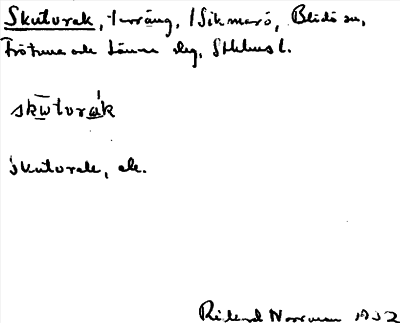 Skutorak, terräng, i Sikmarö, Blidö sn,
Frötuna och Länna skg, Sthlms l.
skutorak
Skutorak, ek.
Rickard Norrman 1932